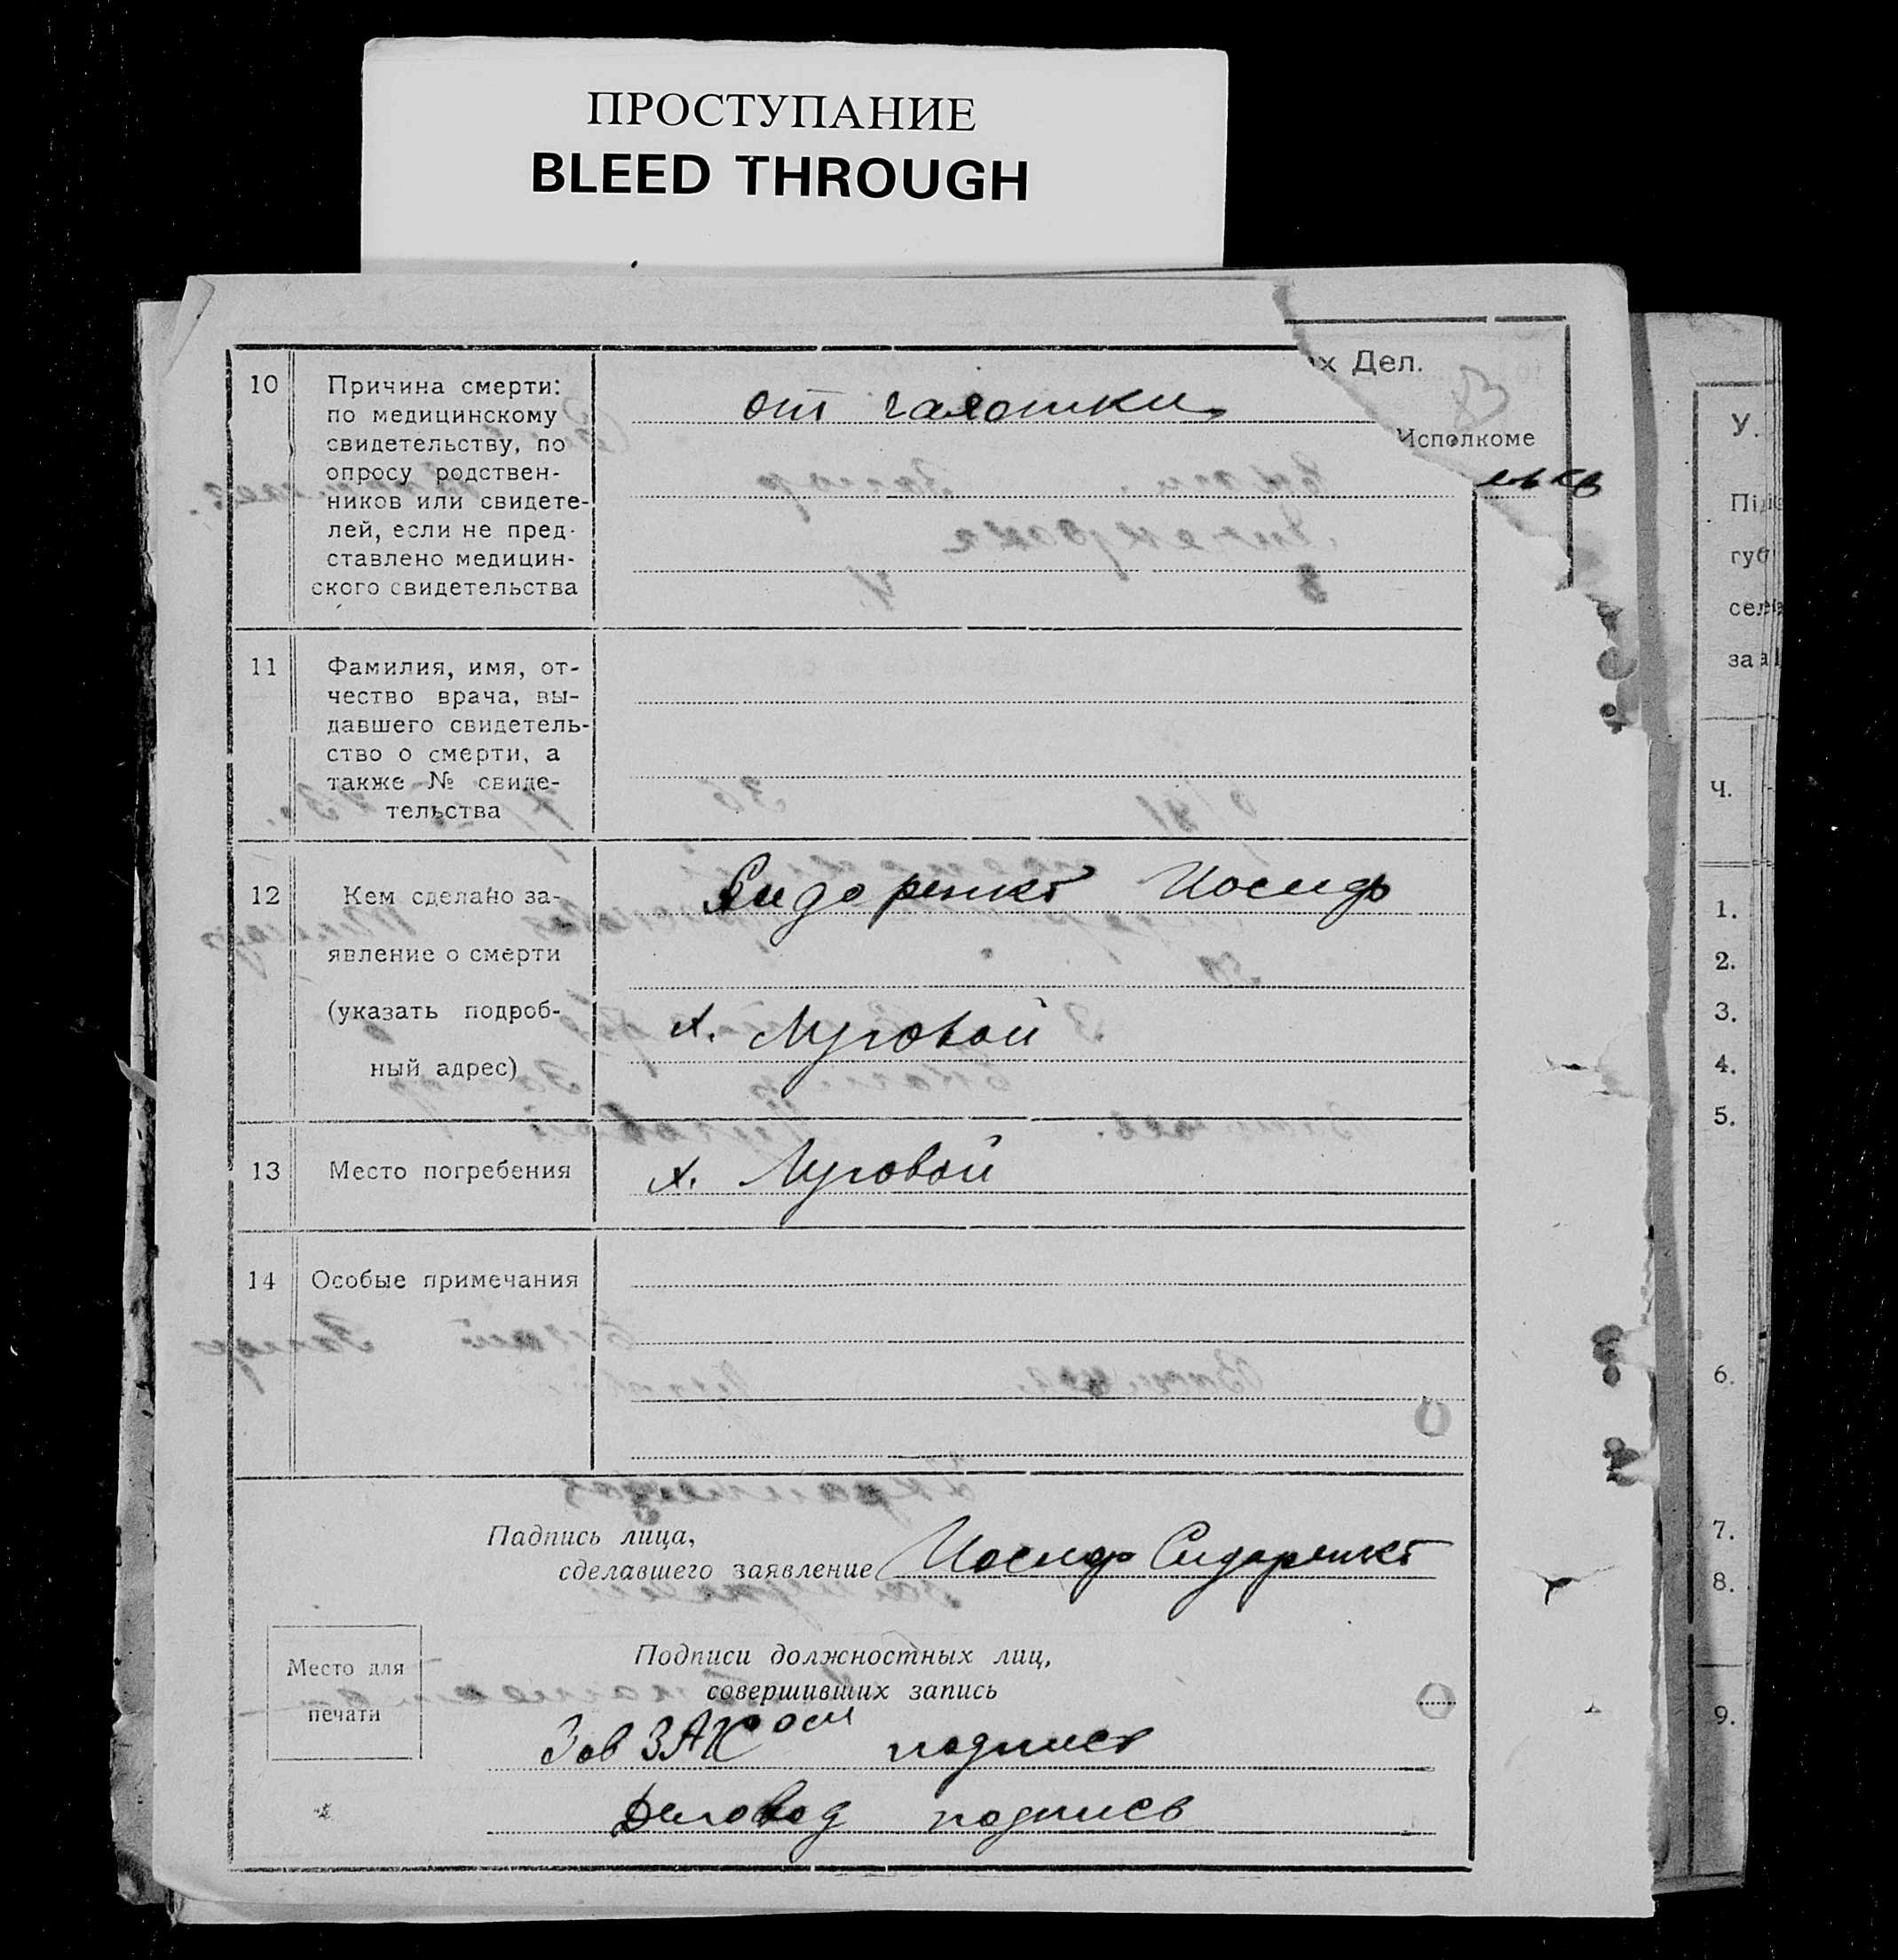 ПРОСТУПАНИЕ
BLEED THROUGH
х Дел.
Исполкоме
10 Причина смерти:
по медицинскому
свидетельству, по
опросу родствен-
ников или свидете-
лей, если не пред-
ставлено медицин-
ского свидетельства
от чахотки
11 Фамилия, имя, от-
чество врача, вы-
давшего свидетель-
ство о смерти, а
также № свиде-
тельства
12 Кем сделано за-
явление о смерти
(указать подроб-
ный адрес)
Сидоренко Иосиф
х. Луговой
13 Место погребения х. Луговой
14 Особые примечания
Падпись лица,
сделавшего заявление Иосиф Сидоренко
Место для
печати
Подписи должностных лиц,
совершивших запись
Зав ЗАГСом подпись
Деловод подпись
У.
Під
губ
сел
за
Ч.
1.
2.
3.
4.
5.
6.
7.
8.
9.